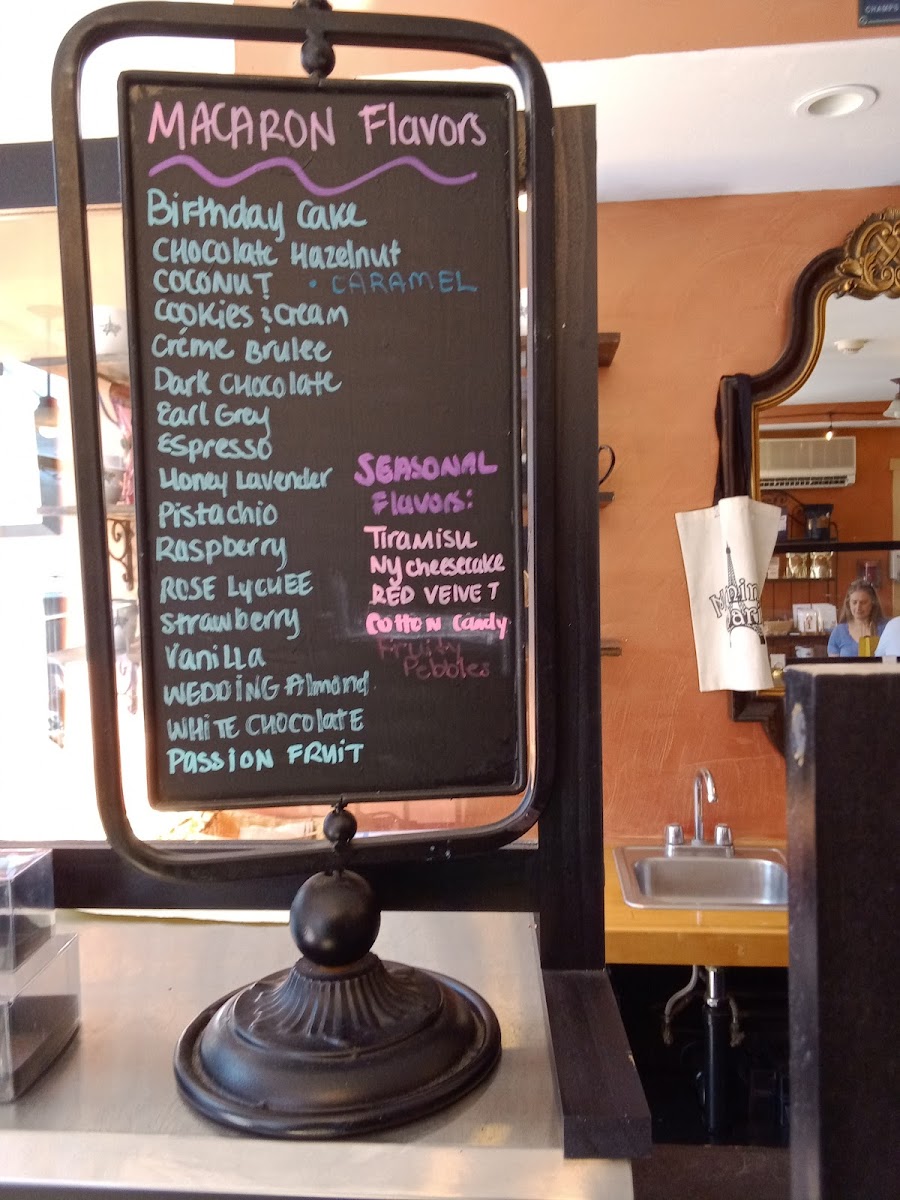 MACARON Flavors
Birthday Cake
CHOCOLATE HAZELNUT
COCONUT
• CARAMEL
COOKIES & CREAM
Créme Brulee
DARK CHOCOLATE
Earl Grey
Espresso
Honey Lavender
Pistachio
Raspberry
ROSE LYCHEE
Strawberry
Vanilla
WEDDING Almond
WHITE CHOCOLATE
PASSION FRUIT
SEASONAL
Flavors:
Tiramisu
Ny cheesecake
RED VELVET
COTTON Candy
Fruity
Pebbles
CHAMPS